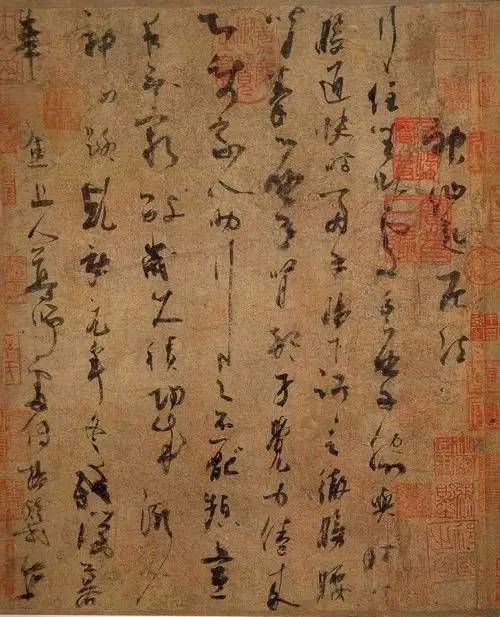 神仙起居法
行住坐臥處手摩脅與肚心
腹通快時兩手腸下踞之徹膀腰
背拳摩腎部才覺力倦來
即使家人助行之不厭頻晝
夜無窮數歲久積功成漸入
神仙路乾祐元年冬殘臘暮
華焦上人尊師處傳楊凝式